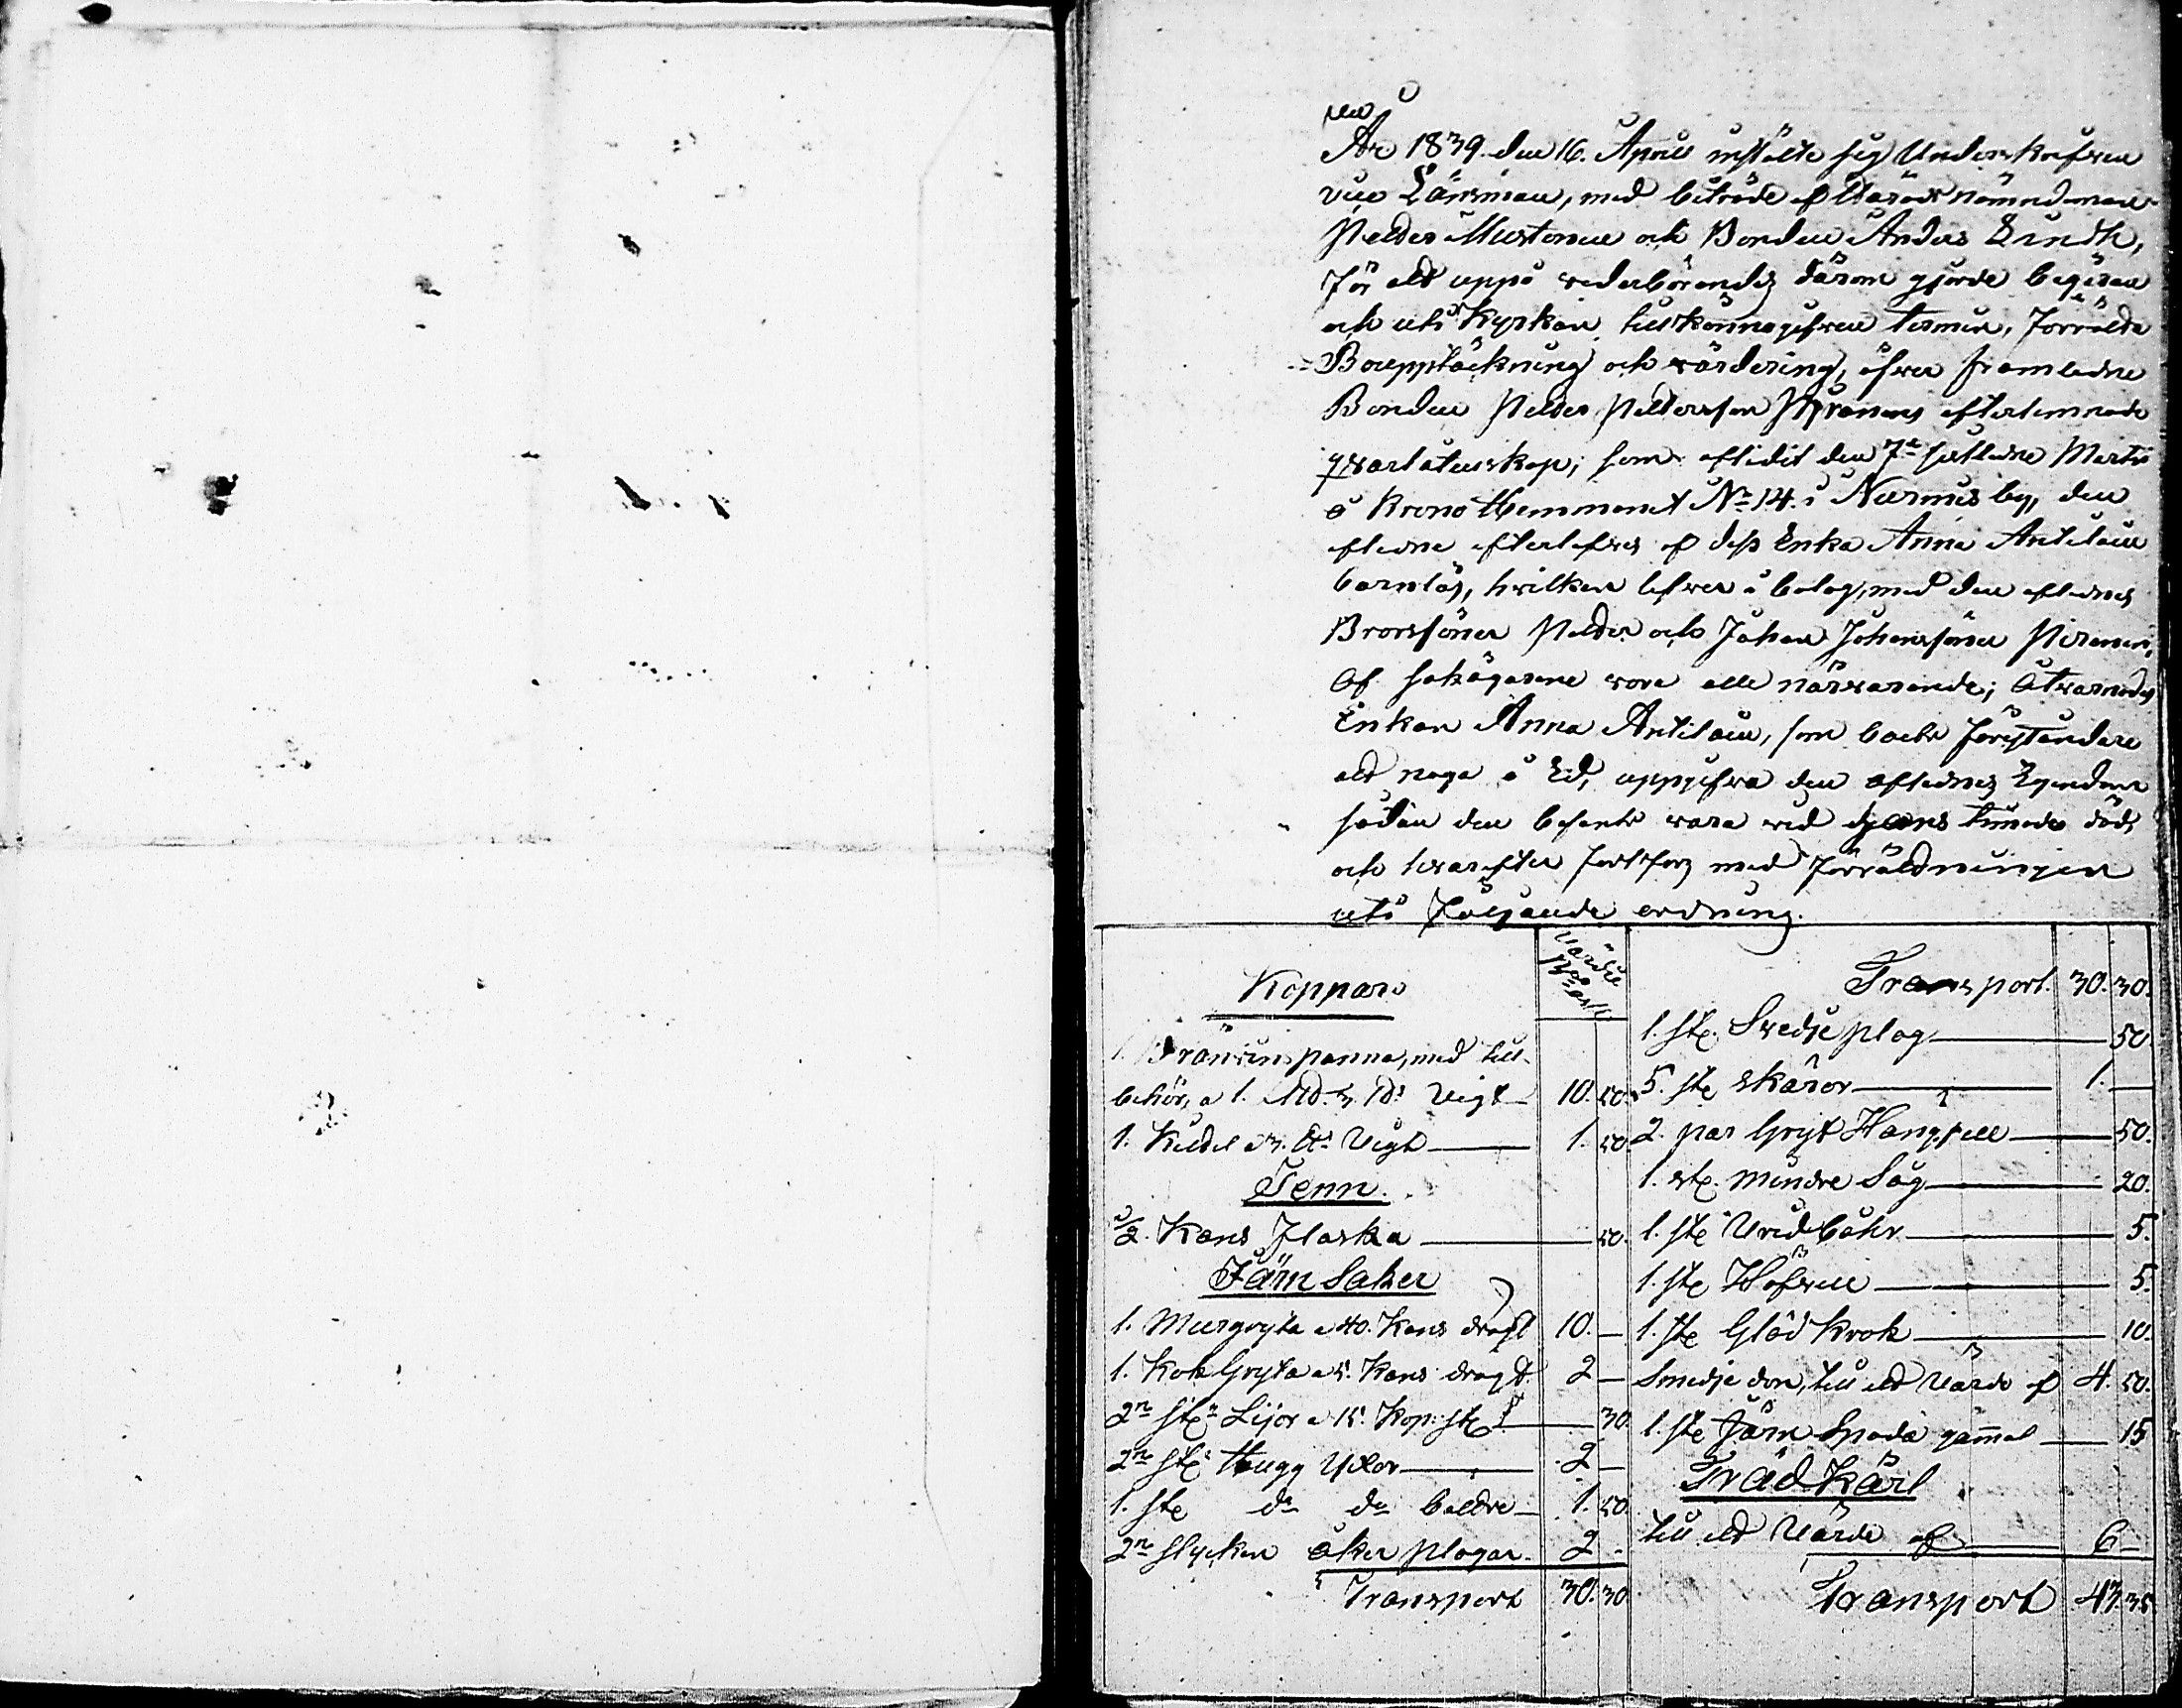 År 1839 den 16. April instälte sig Underskrefven
vice Länsman, med biträde af Häradsnämndeman
Petter Mustonen och Bonden Anders Lindh,
för att uppå vederbörandes därom gjorde begäran
och uti Kyrkan tillkännagifven termin, förrätta
Bouppteckning och värdering, öfver framledne
Bonden Petter Pettersson Pyronens efterlemnade
qvarlåtenskap; som aflidit den 7de sistledne Martii
å Krono Hemmanet No 14. i Nurmis by, den
aflidne efterlefves af dess Enka Anna Antilain
barnlös, hvilken lefver i bolag, med den aflidnes
Brorsöner Petter och Johan Johanssöner Pironen,
Af sakägarene voro alla närvarande; åtvarnades
Enkan Anna Antilain, som boets föreståndare
att noga å Ed, uppgifva den aflidnes Egendom
sådan den befants vara vid dödstimade död,
och hvarefter fortfors med förrättningen
uti följande ordning.
Koppar
Värde
1. Bränvins panna, med till-
behör, a 1. Ld. 5. ℔ Vigt 10. 50.
1. Kittel a 3. ℔ Vigt 1. 50.
Tenn.
1/2. Kans Flaska 50.
Järn Saker
1. Murgryta a 40. Kans dragt 10. —
1. Kok Gryta a 5. Kans dragt. 2 —
2ne st. Lijor a 15. Kop. st. 30.
2ne st. Hugg Yxor 2 —
1. st. do do bättre 1. 50.
2ne stycken åker plogar. 2 -
Transport 30. 30
Transport. 30. 30.
1. st. Svedje plog 50.
5. st. skäror 1. —
2. par Gryt Hangsell 50.
1. st. mindre Såg 20.
1. st. Vridbåhr 5.
1. st. Höfvell 5.
1. st. Glöd Krok 10.
Smedje don, till ett värde af 4. 50.
1. st. Järn Spada gammal 15
Träd Kärl
till ett Värde af 6 -
Transport 43. 35